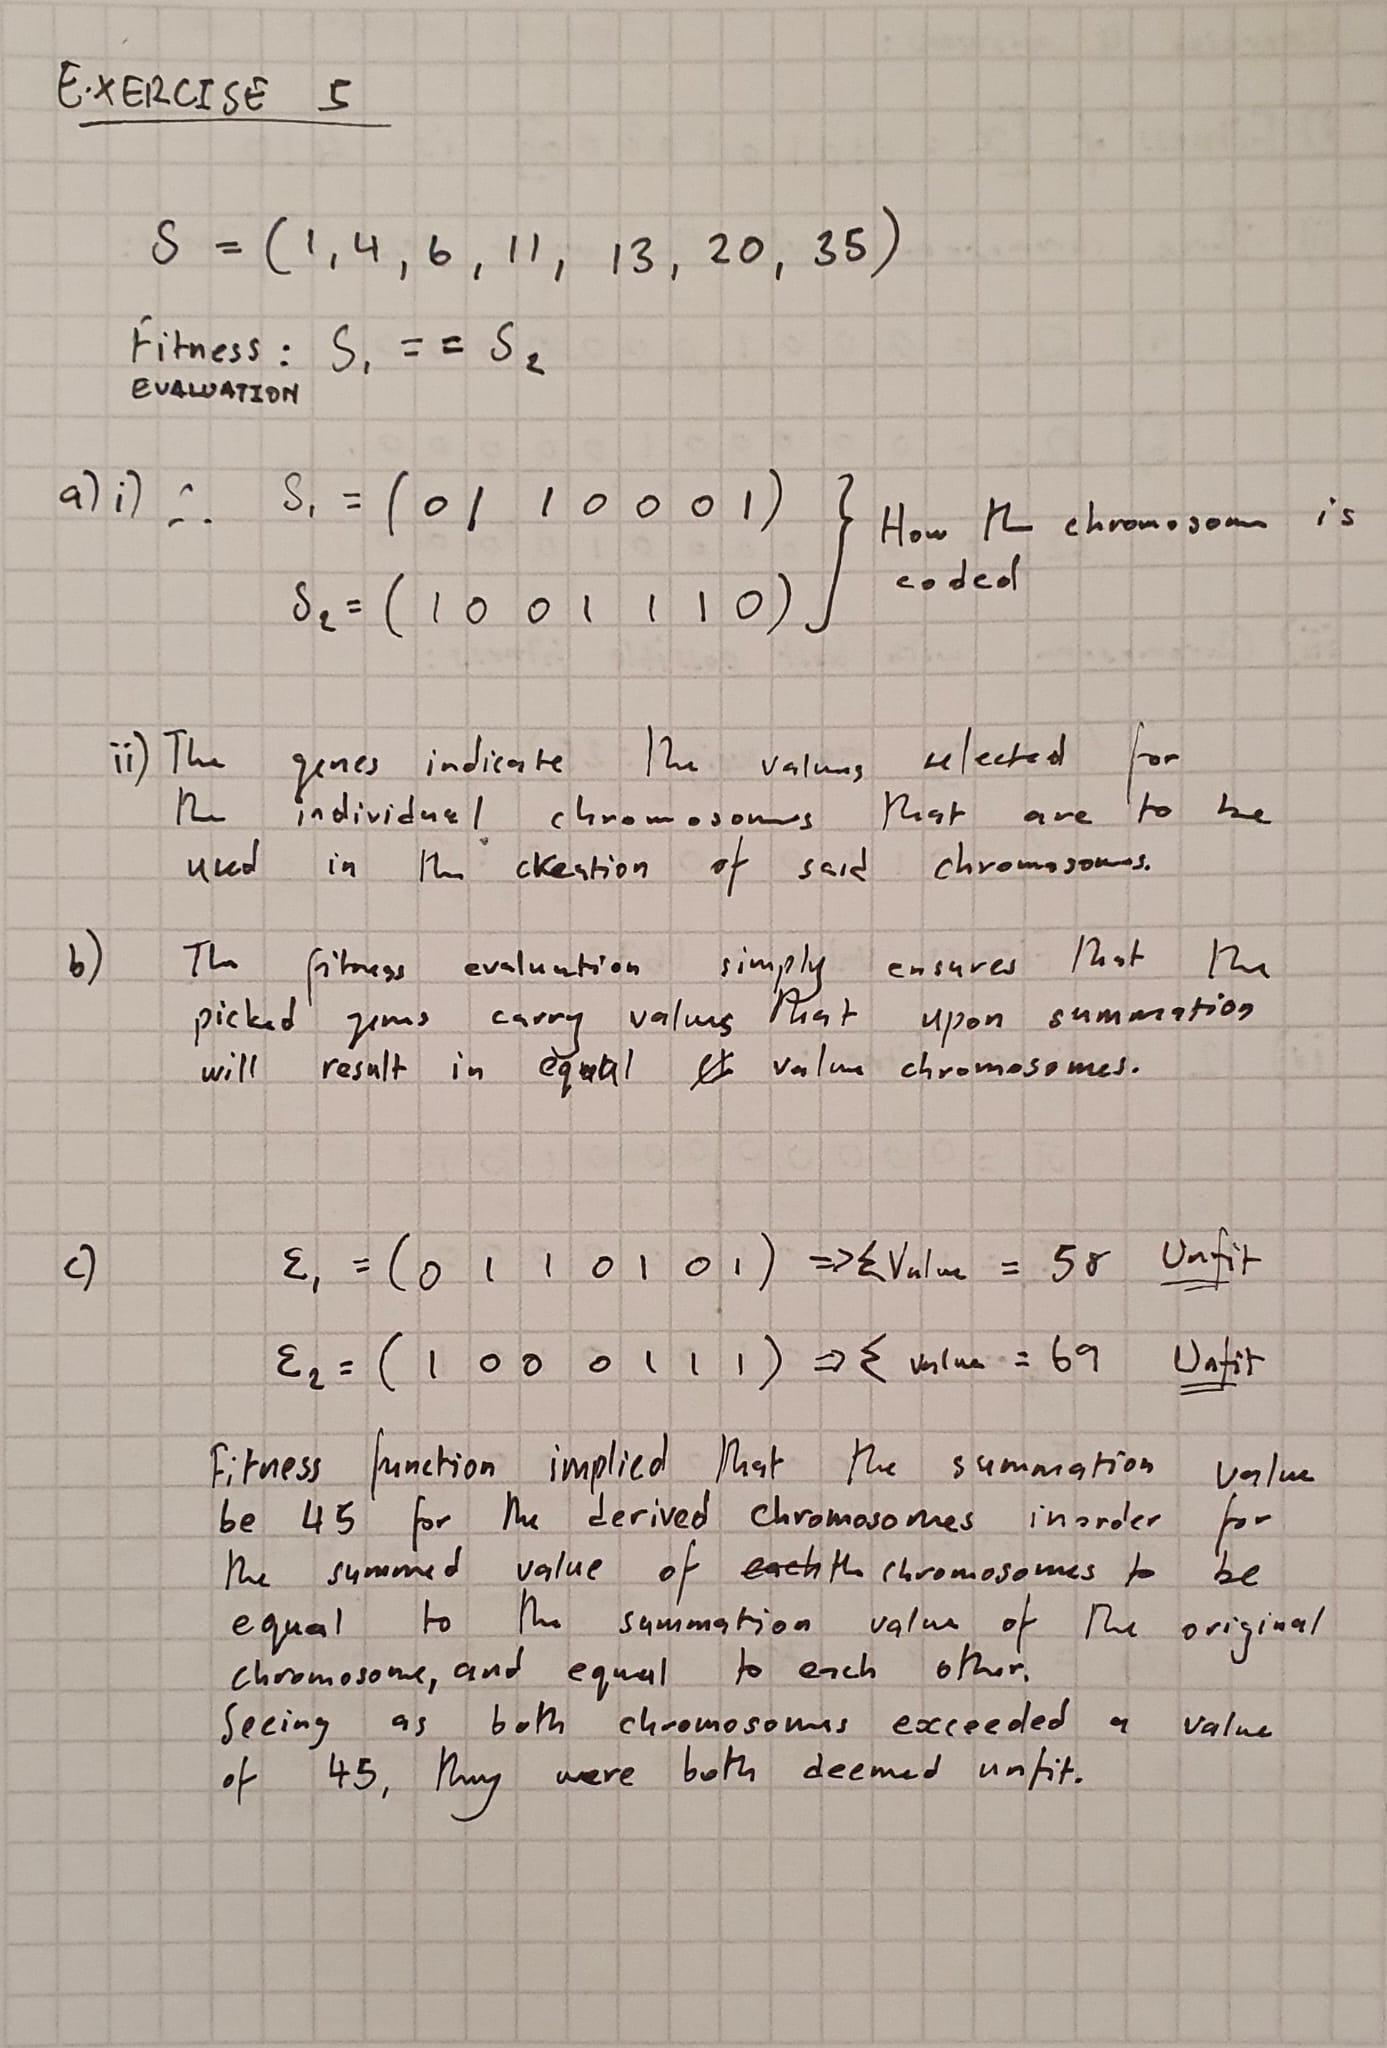 EXERCISE 5
S = (1, 4, 6, 11, 13, 20, 35)
Fitness: S₁ == S₂
EVALUATION
a) i) ∴ S₁ = (0 1 1 0 0 0 1) } How the chromosome is
coded
S₂ = (1 0 0 1 1 1 0)
ii) The genes indicate the values selected for
the individual chromosomes that are to be
used in the creation of said chromosomes.
b) The fitness evaluation simply ensures that the
picked genes carry values that upon summation
will result in equal value chromosomes.
c) Ɛ₁ = (0 1 1 0 1 0 1) => Σ Value = 58 Unfit
Ɛ₂ = (1 0 0 0 1 1 1) => Σ value = 69 Unfit
Fitness function implied that the summation value
be 45 for the derived chromosomes inorder for
the summed value of each the chromosomes to be
equal to the summation value of the original
chromosome, and equal to each other.
Seeing as both chromosomes exceeded a value
of 45, they were both deemed unfit.